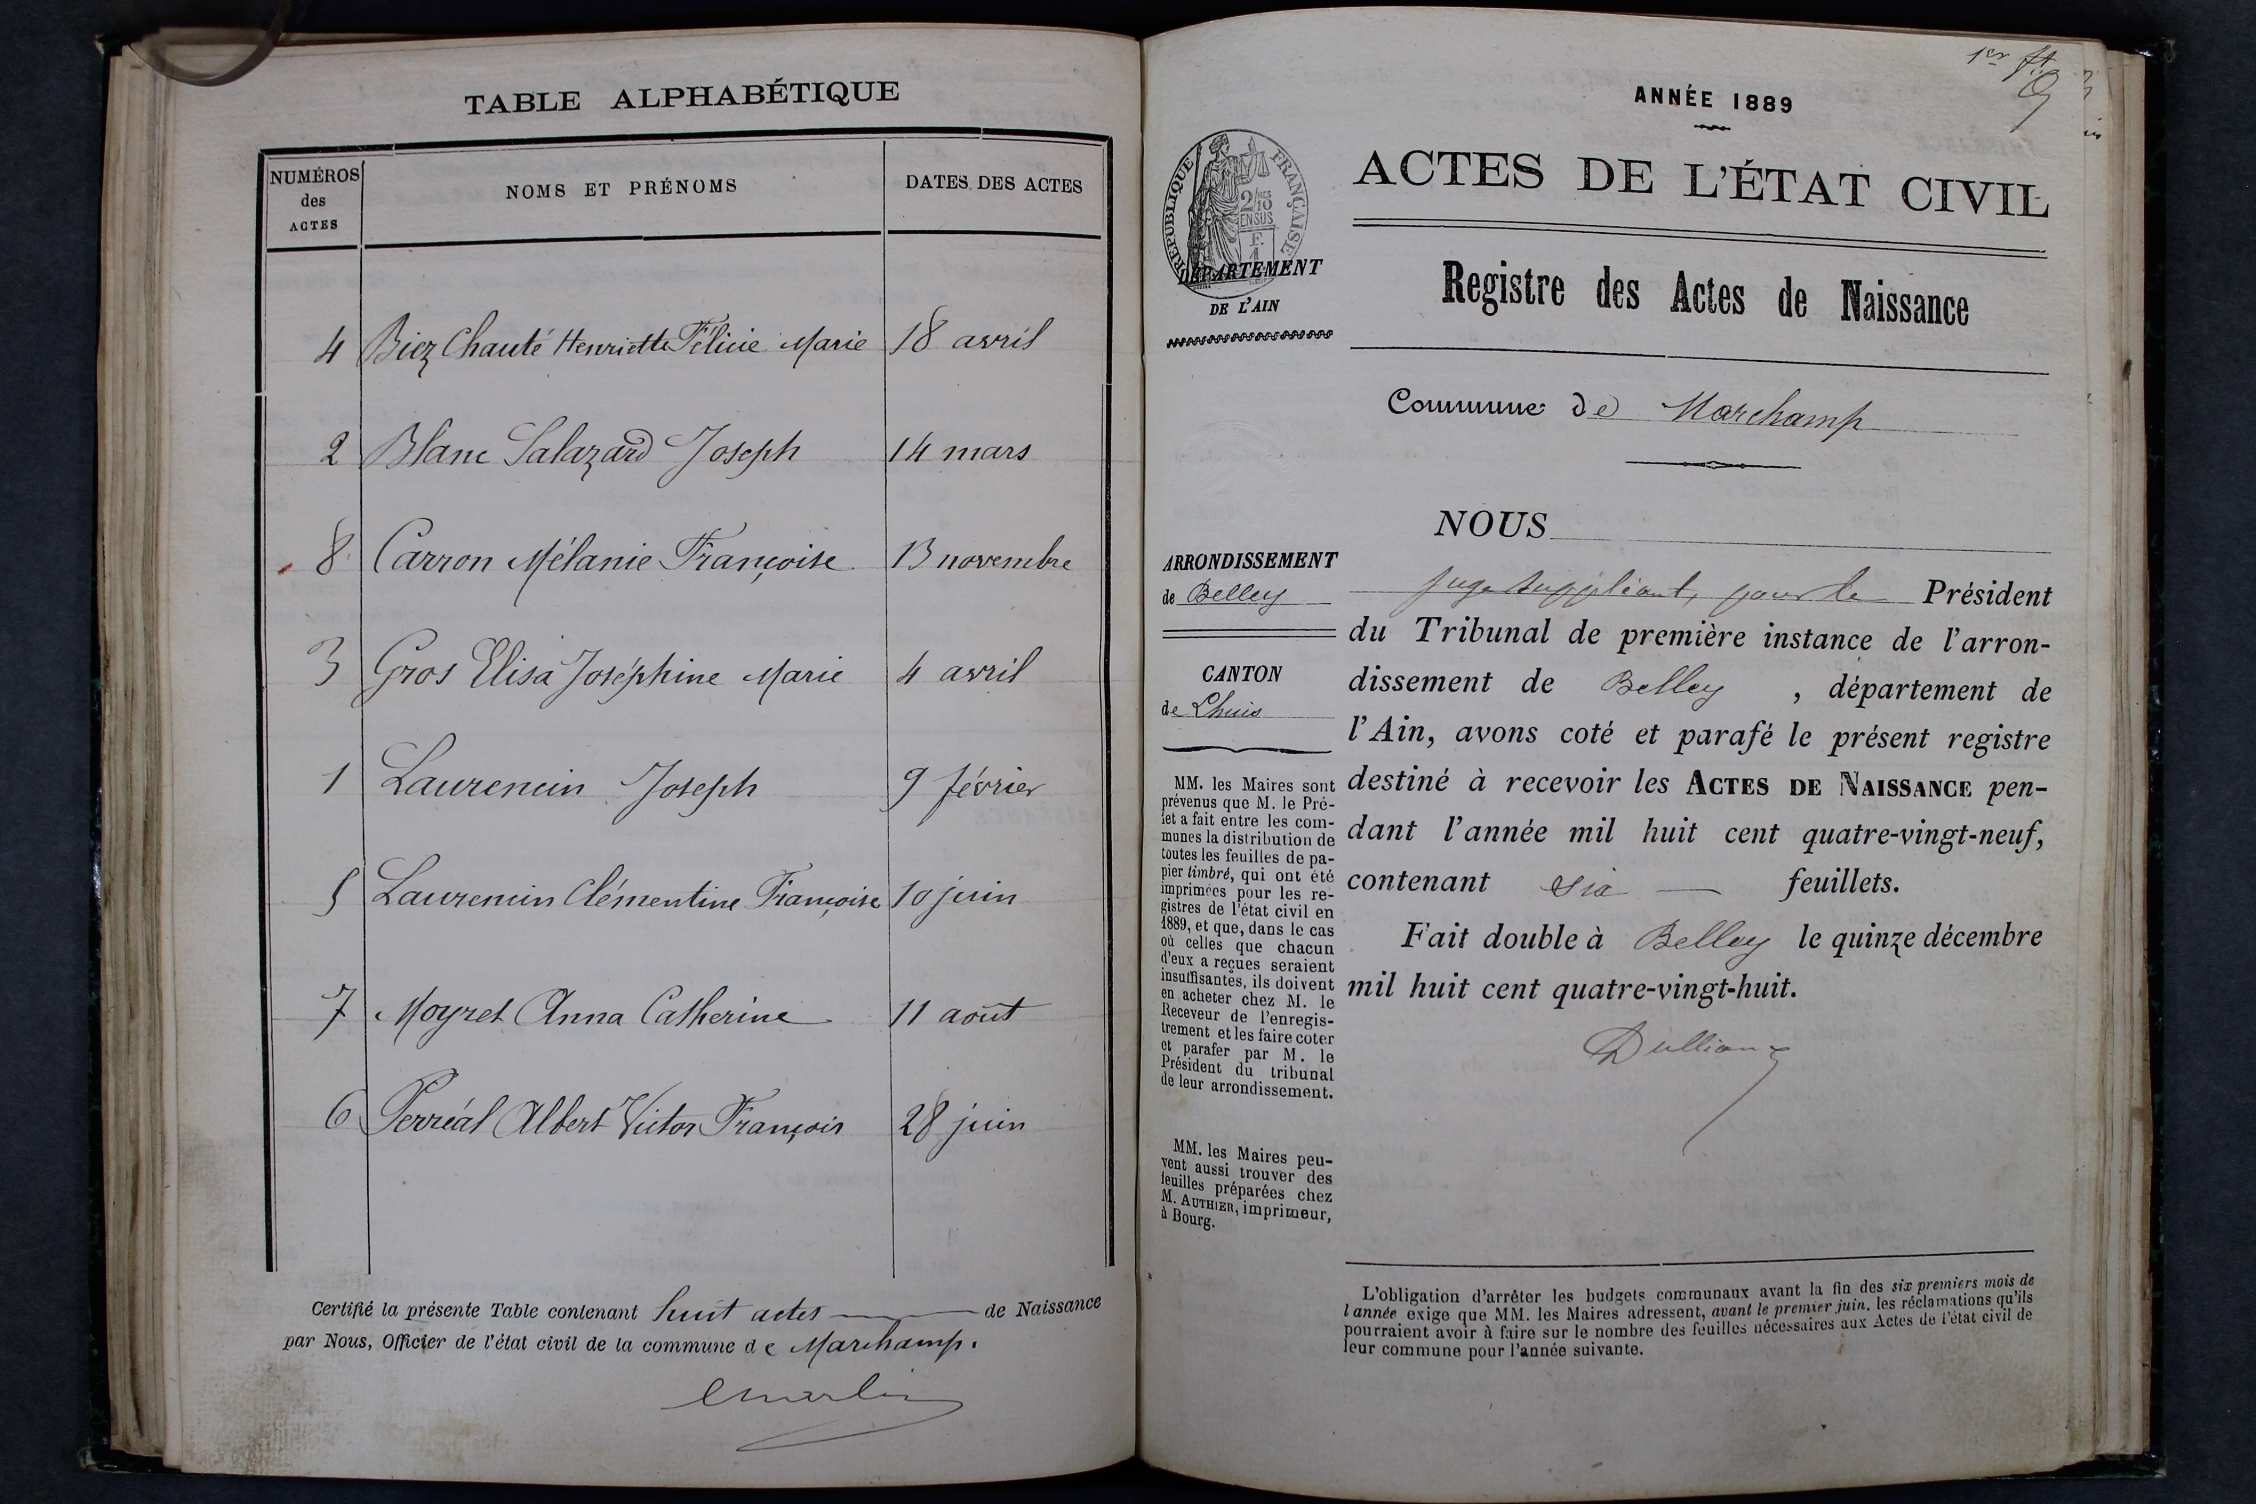 TABLE ALPHABÉTIQUE
NUMÉROS
des
ACTES
NOMS ET PRÉNOMS
DATES DES ACTES
4 Biez Chauté Henriette Félicie Marie 18 avril
2 Blanc Salazard Joseph 14 mars
8 Carron Mélanie Françoise 13 novembre
3 Gros Elisa Joséphine Marie 4 avril
1 Laurencin Joseph 9 février
5 Laurencin Clémentine Françoise 10 juin
7 Moyret Anna Catherine 11 août
6 Perréal Albert Victor François 28 juin
Certifié la présente Table contenant huit actes de Naissance
par Nous, Officier de l'état civil de la commune de Marchamp.
1er ft
ANNÉE 1889
ACTES DE L'ÉTAT CIVIL
RÉPUBLIQUE FRANÇAISE
DÉPARTEMENT
DE L'AIN
Registre des Actes de Naissance
Commune de Marchamp
ARRONDISSEMENT
de Belley
CANTON
de Lhuis
MM. les Maires sont
prévenus que M. le Pré-
fet a fait entre les com-
munes la distribution de
toutes les feuilles de pa-
pier timbré, qui ont été
imprimées pour les re-
gistres de l'état civil en
1889, et que, dans le cas
où celles que chacun
d'eux a reçues seraient
insuffisantes, ils doivent
en acheter chez M. le
Receveur de l'enregis-
trement et les faire coter
et parafer par M. le
Président du tribunal
de leur arrondissement.
MM. les Maires peu-
vent aussi trouver des
feuilles préparées chez
M. AUTHIER, imprimeur,
à Bourg.
NOUS
juge suppléant, pour le Président
du Tribunal de première instance de l'arron-
dissement de Belley, département de
l'Ain, avons coté et parafé le présent registre
destiné à recevoir les ACTES DE NAISSANCE pen-
dant l'année mil huit cent quatre-vingt-neuf,
contenant six feuillets.
Fait double à Belley le quinze décembre
mil huit cent quatre-vingt-huit.
L'obligation d'arrêter les budgets communaux avant la fin des six premiers mois de
l'année exige que MM. les Maires adressent, avant le premier juin, les réclamations qu'ils
pourraient avoir à faire sur le nombre des feuilles nécessaires aux Actes de l'état civil de
leur commune pour l'année suivante.